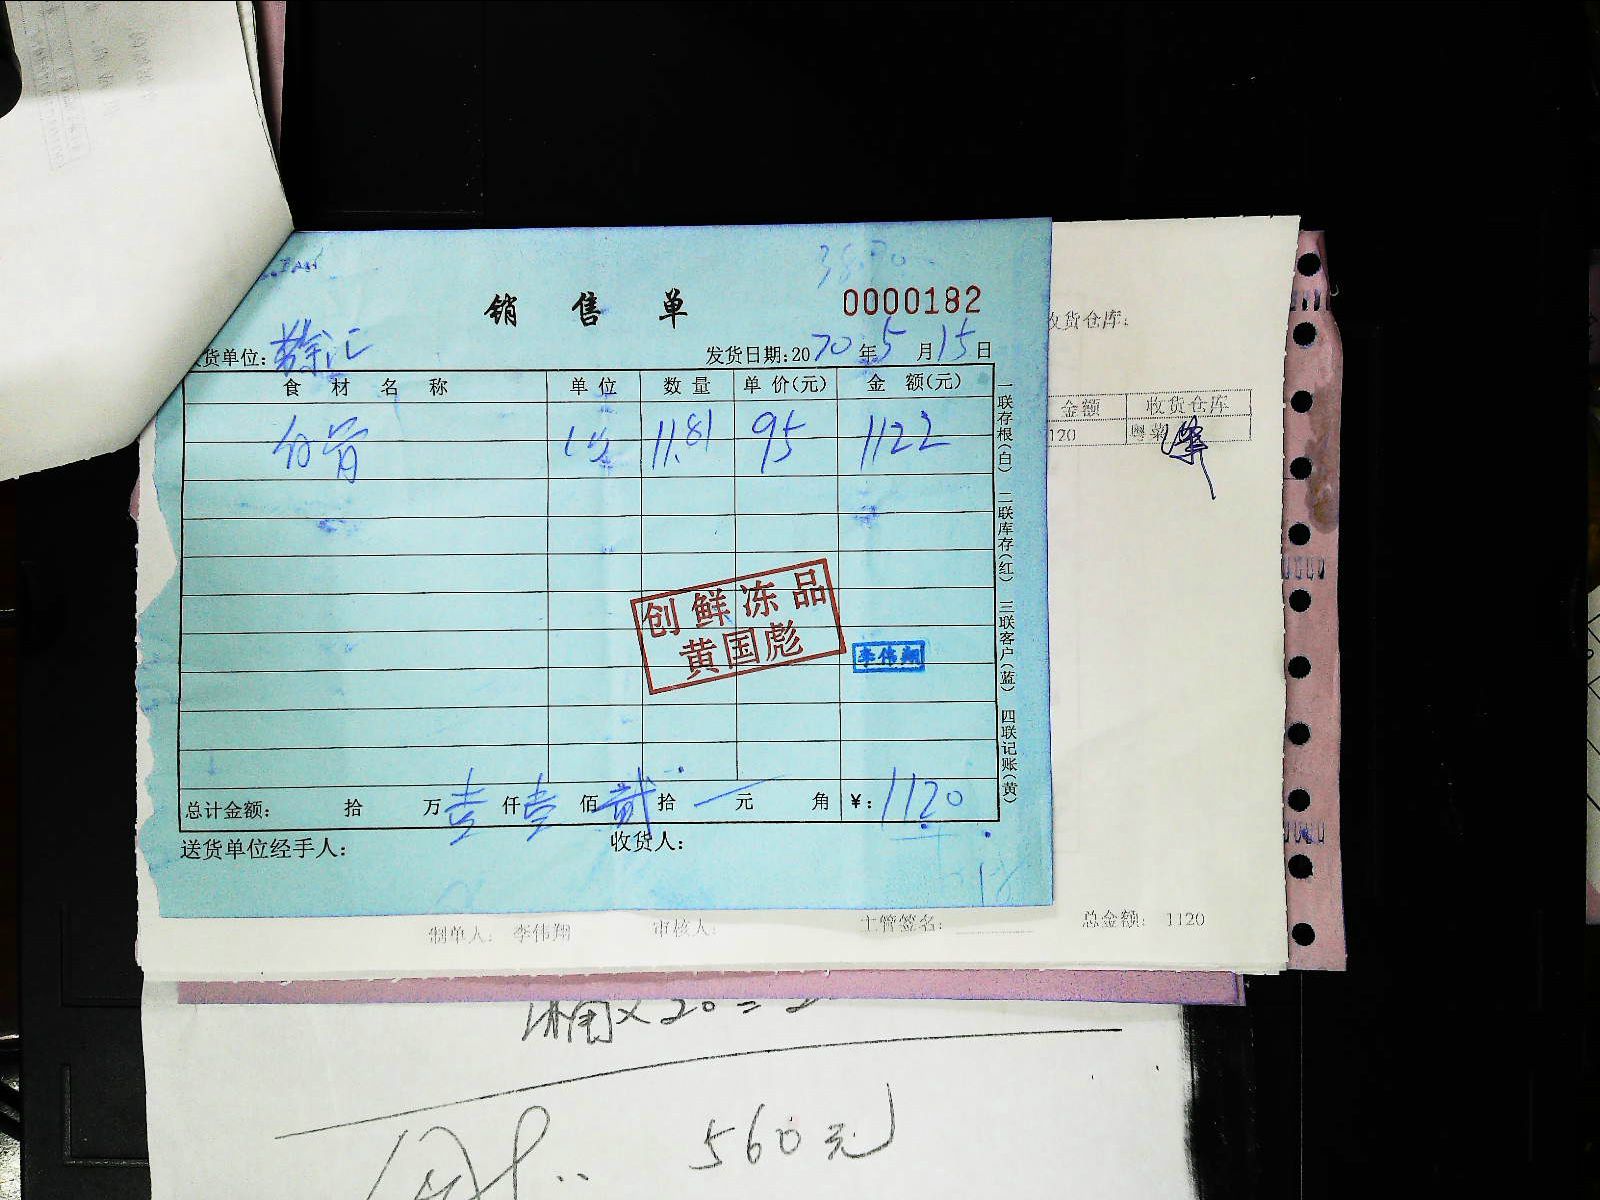 销售单
0000182
货单位: 徐汇
发货日期:2020年5月15日
食材名称 单位 数量 单价(元) 金额(元)
11.81 95 1122
一联存根(白) 二联库存(红) 三联客户(蓝) 四联记账(黄)
创鲜冻品
黄国彪
李伟翔
总计金额: 拾 万壹仟壹佰贰拾 元 角 ¥: 1120
送货单位经手人: 收货人:
收货仓库:
金额 收货仓库
120 粤菜
制单人: 李伟翔 审核人: 主管签名: 总金额: 1120
560元